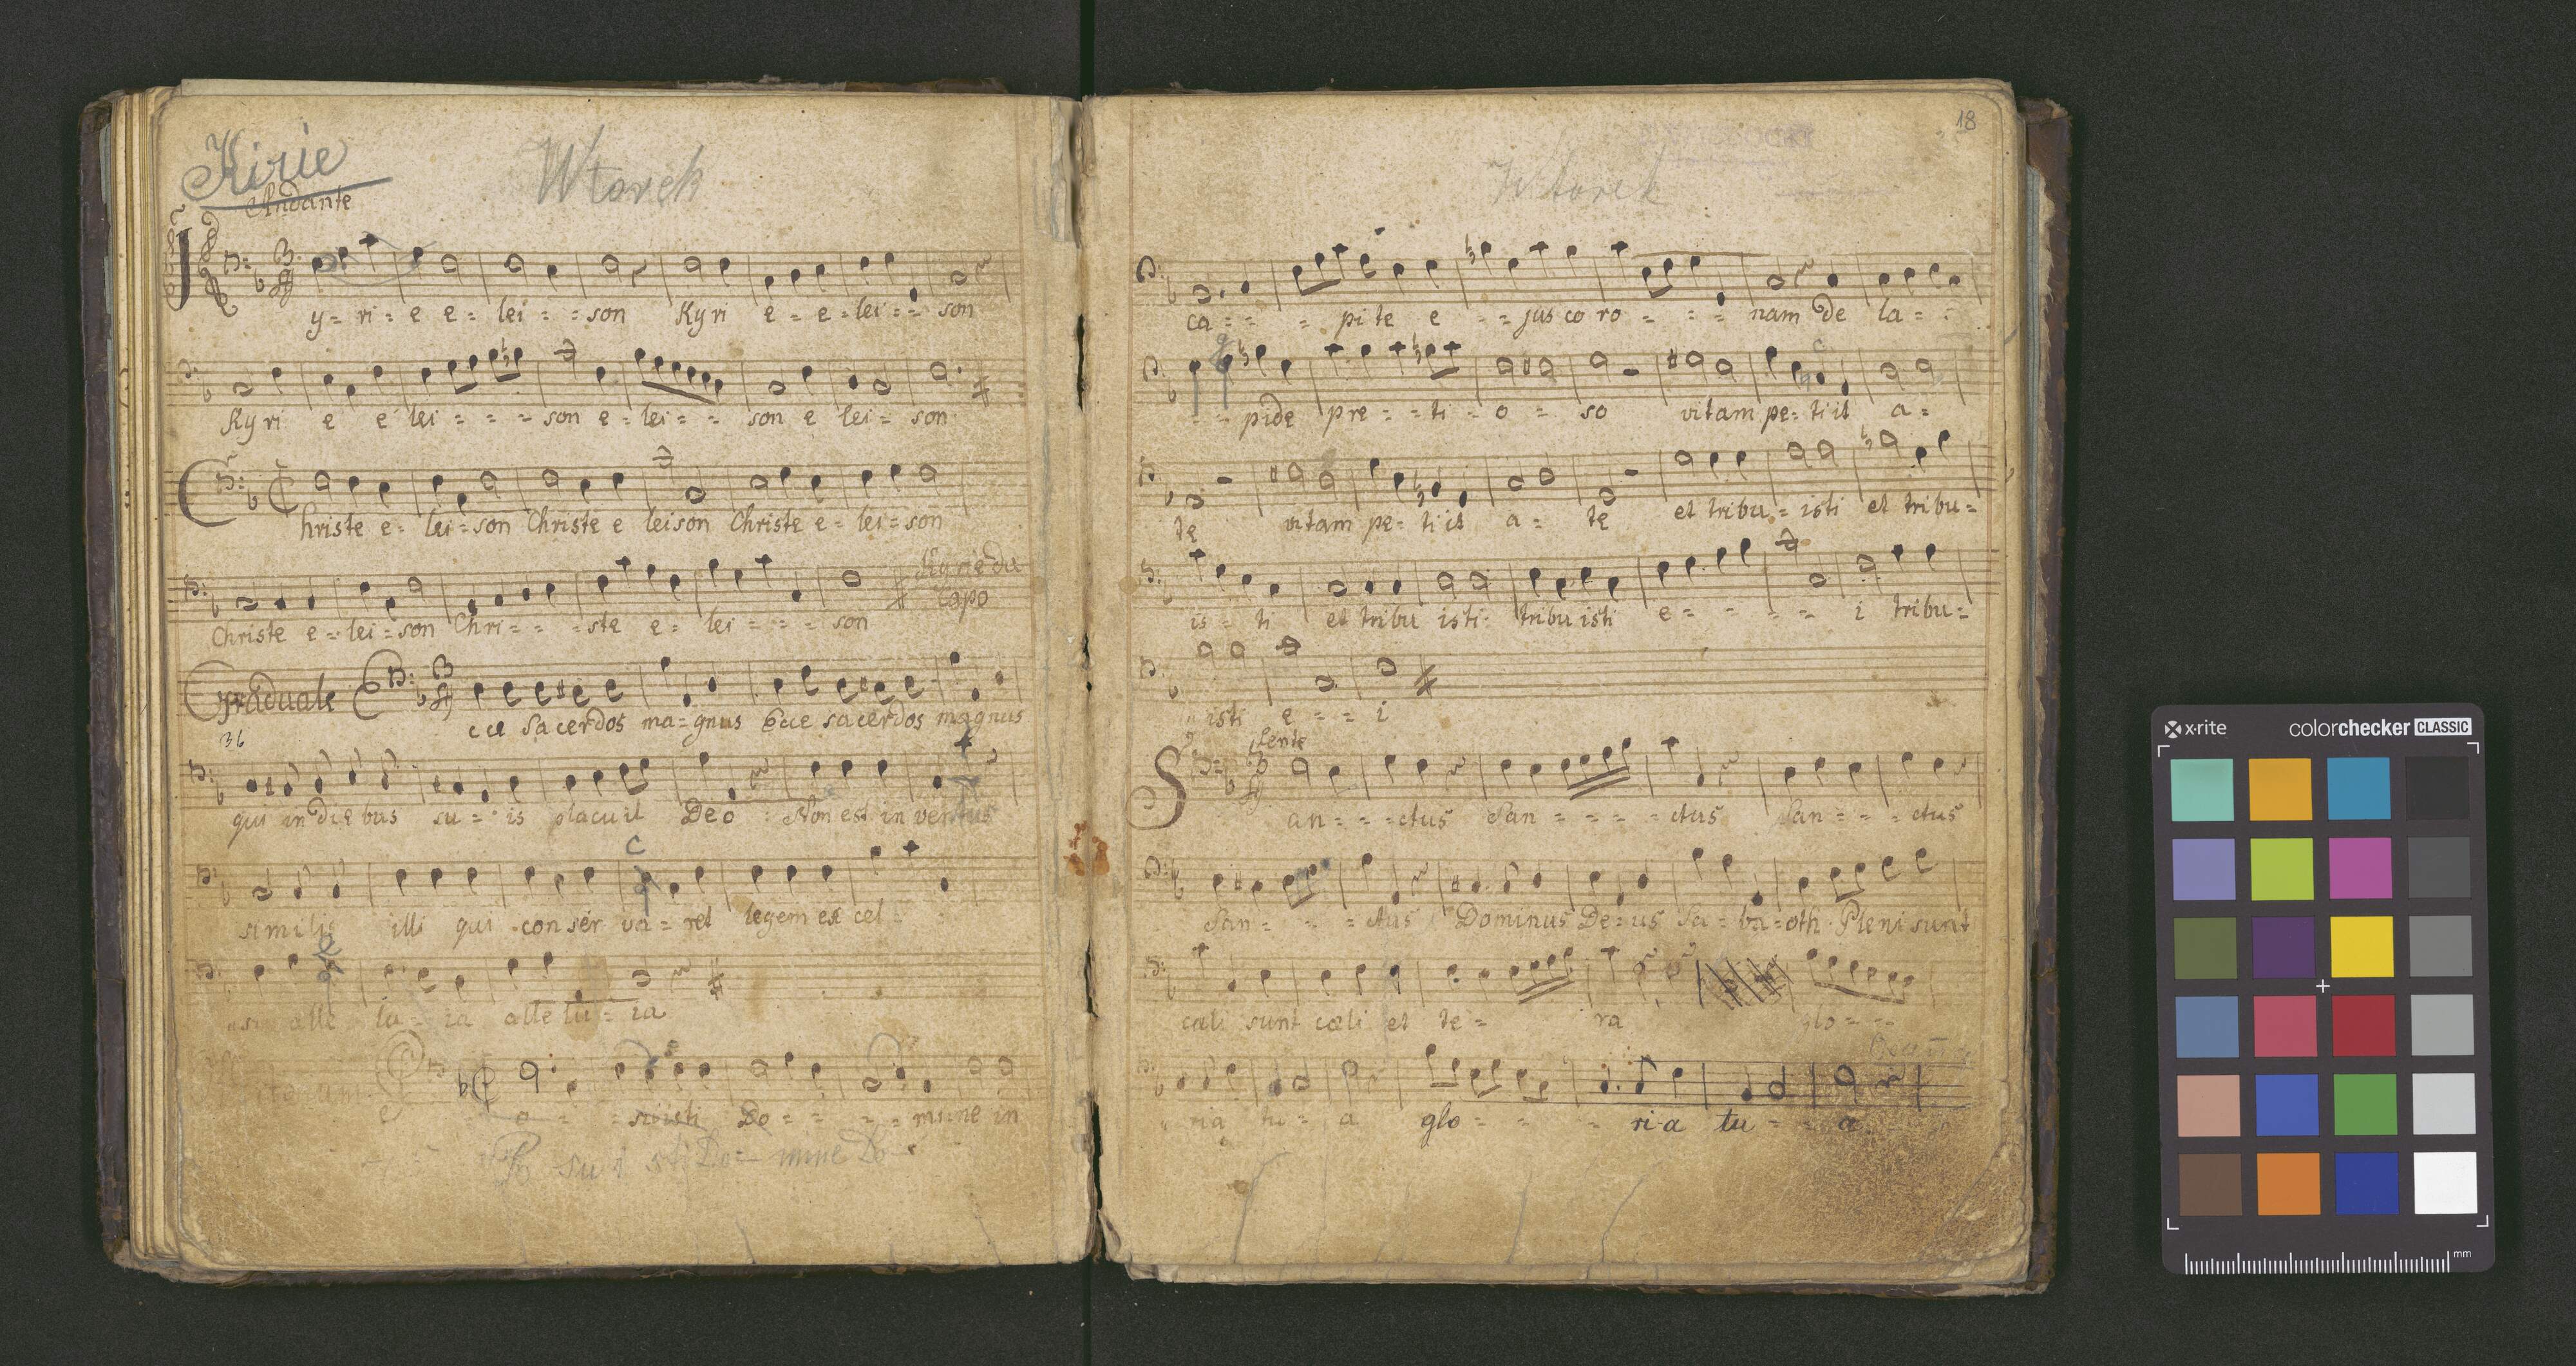 Kirie
Wtorek
Andante
y = ri = e e = lei = = son Kyri e = e = lei = = son
Kyri e e lei = = = son e = lei = = son e lei = son
hriste e = lei = son Christe e leison Christe e = lei = son
Kyrie da
Capo
Christe e = lei = son Chri = = = ste e = lei = = = son
Graduale
cce Sacerdos ma = gnus Ecce sacerdos magnus
36
qui in diebus su = is placuit Deo Non est inventus
C
similis illi qui conser va = ret legem ex cel
alle lu = ia alle lu = ia
= suisti Do = = = = mi = ne in
Po sui sti Do = mine Do =
18
Wtorek
ca = = = pite e = = jus co ro = = = nam de la = =
= = pide pre = = ti = o = so vitam pe = tiit a =
te vitam pe = tiit a = te et tribu = isti et tribu =
is = ti et tribu isti = tribu isti e = = = = = i tribu =
isti e = = i
Lente
S
an = = = ctus San = = = = ctus San = = = ctus
San = = = ctus Dominus De = us Sa = ba = oth Pleni sunt
cæli sunt cæli et te = ra glo = = =
= ria tu = a glo = = = ri = a tu = = a
x·rite colorchecker CLASSIC
mm